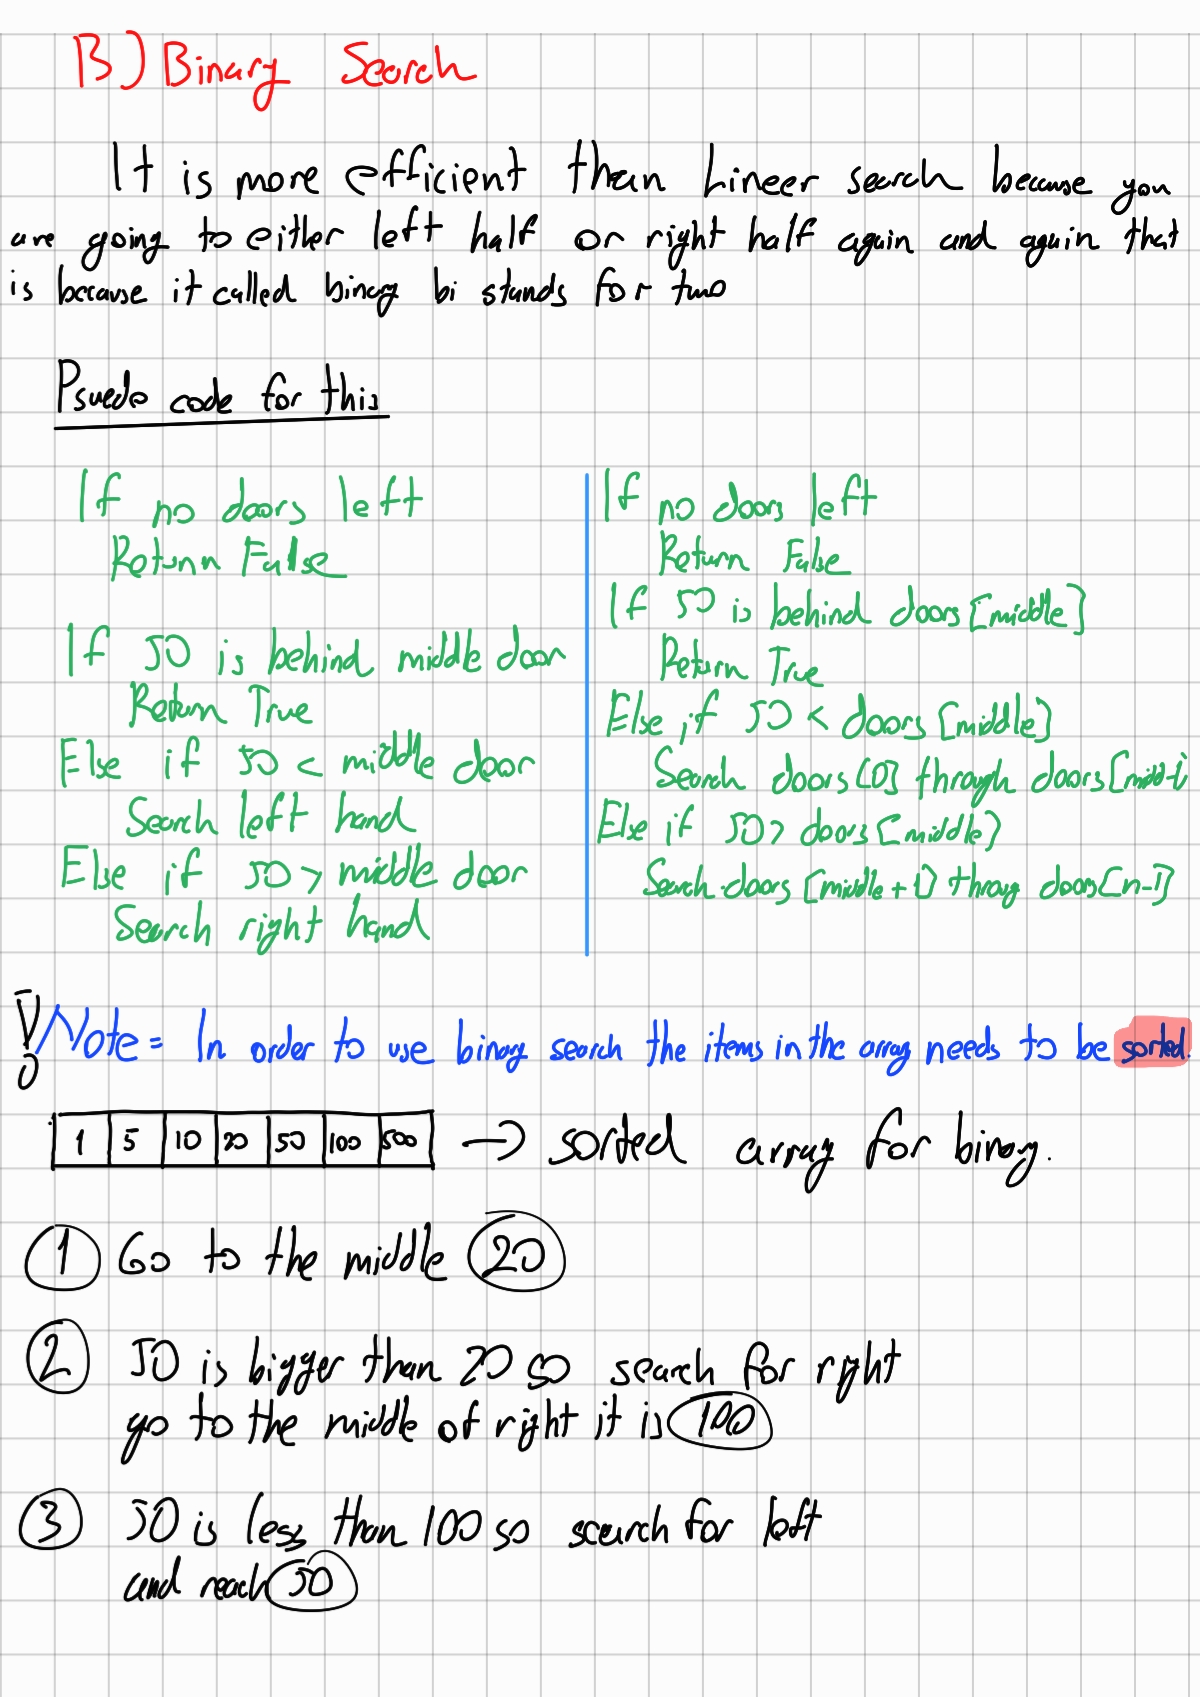 B) Binary Search
It is more efficient than Lineer search because you
are going to either left half or right half again and again that
is because it called binary bi stands for two
Psuedo code for this
If no doors left
Return False
If 50 is behind middle door
Return True
Else if 50 < middle door
Search left hand
Else if 50 > middle door
Search right hand
If no doors left
Return False
If 50 is behind doors [middle]
Return True
Else if 50 < doors [middle]
Search doors [0] through doors [midd-1
Else if 50 > doors [middle]
Search doors [middle + 1] throug doors [n-1]
! Note = In order to use binary search the items in the array needs to be sorted.
1 5 10 20 50 100 500 → sorted array for binary.
1 Go to the middle 20
2 50 is bigger than 20 so search for right
go to the middle of right it is 100
3 50 is less than 100 so search for left
and reach 50